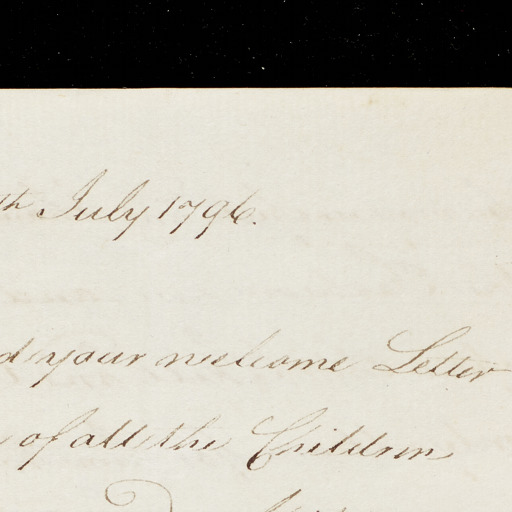 th July 1796.
d your welcome Letter
of all the Children